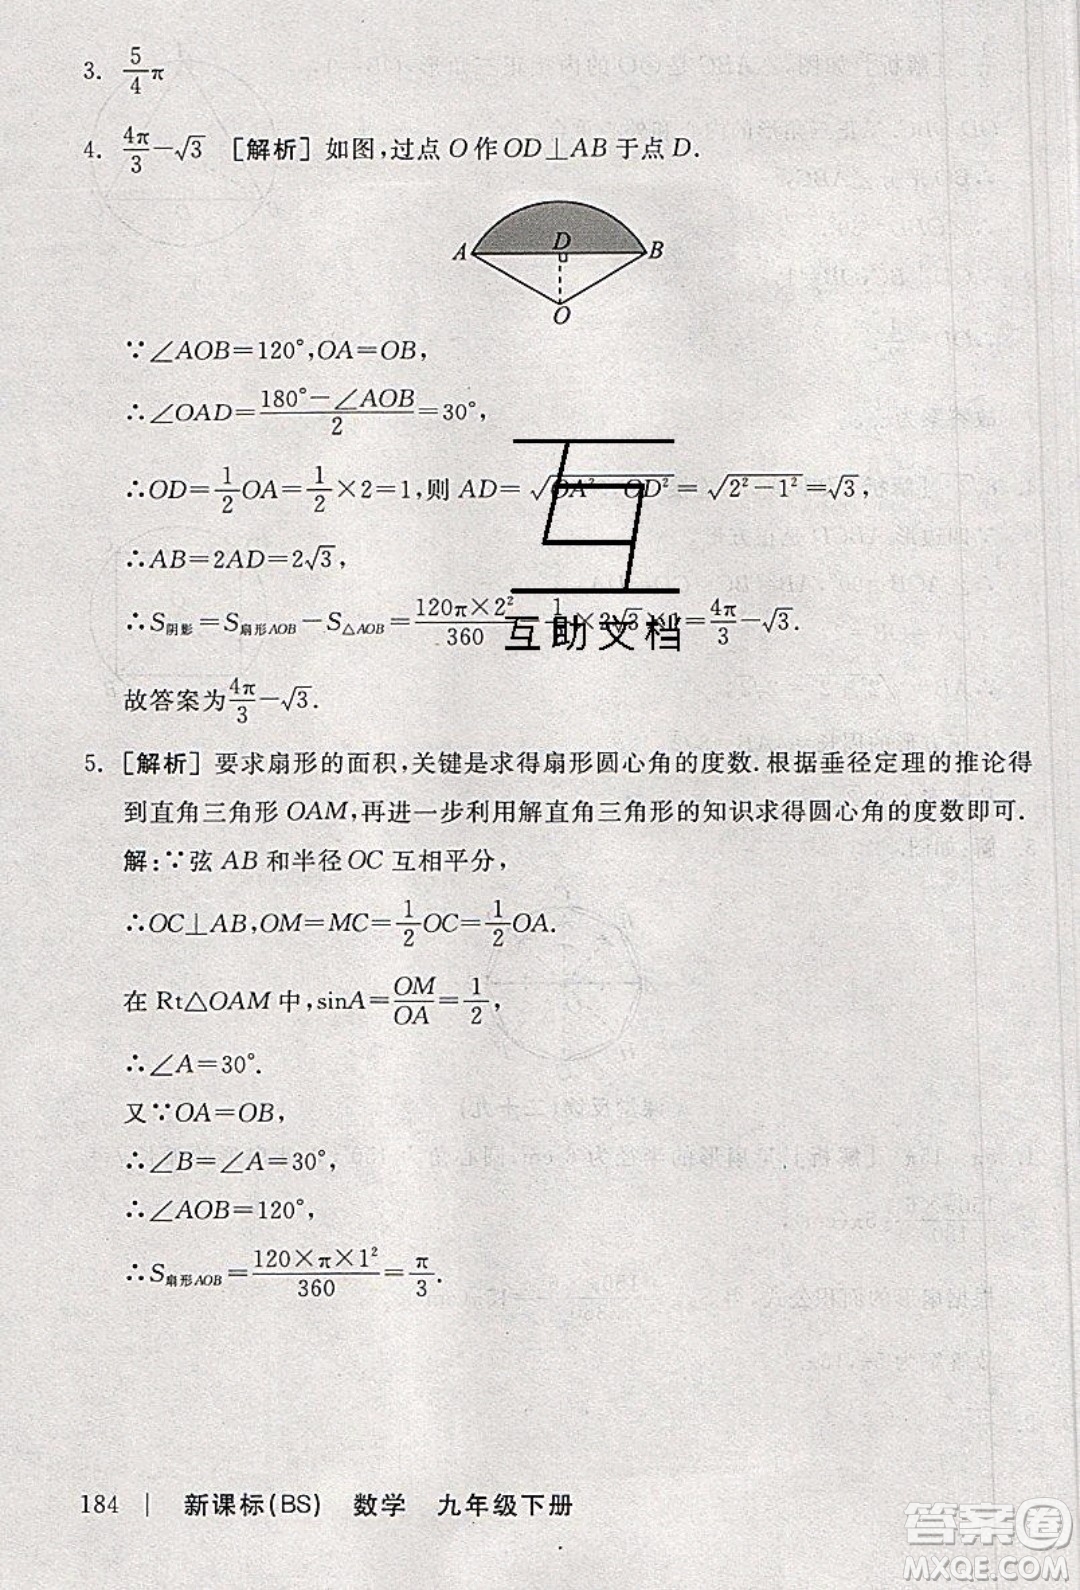 3. 5/4 π
4. 4π/3－√3 [解析] 如图,过点 O 作 OD⊥AB 于点 D.
A D B
O
∵∠AOB＝120°,OA＝OB,
∴∠OAD＝(180°－∠AOB)/2＝30°,
∴OD＝1/2 OA＝1/2×2＝1,则 AD＝√(OA²－OD²)＝√(2²－1²)＝√3,
∴AB＝2AD＝2√3,
∴S阴影＝S扇形AOB－S△AOB＝120π×2²/360－1/2×2√3×1＝4π/3－√3.
互助文档
故答案为4π/3－√3.
5. [解析] 要求扇形的面积,关键是求得扇形圆心角的度数.根据垂径定理的推论得
到直角三角形 OAM,再进一步利用解直角三角形的知识求得圆心角的度数即可.
解:∵弦 AB 和半径 OC 互相平分,
∴OC⊥AB,OM＝MC＝1/2 OC＝1/2 OA.
在 Rt△OAM 中,sinA＝OM/OA＝1/2,
∴∠A＝30°.
又∵OA＝OB,
∴∠B＝∠A＝30°,
∴∠AOB＝120°,
∴S扇形AOB＝120×π×1²/360＝π/3.
184 | 新课标(BS) 数学 九年级下册
答案圈
MXQE.COM